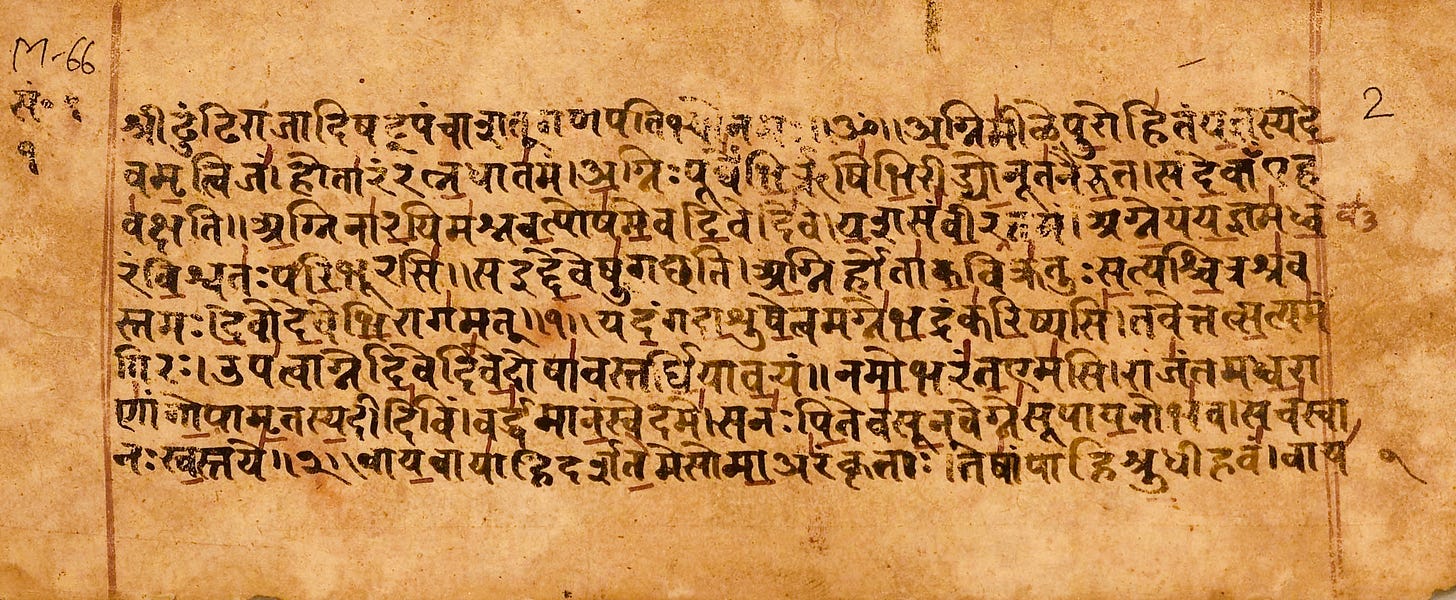 M-66
2
मं॰ १
१
श्रीढुंढिराजादिषट्पंचाशत् गणपतिभ्योनमः॥ॐ॥अग्निमीळेपुरोहितंयज्ञस्यदे
वमृत्विजं।होतारंरत्नधातमं।अग्निःपूर्वेभिर्ऋषिभिरीड्योनूतनैरुत।सदेवाँएह
वक्षति॥अग्निनारयिमश्नवत्पोषमेवदिवेदिवे।यशसंवीरवत्तमं।अग्नेयंयज्ञमध्व
रंविश्वतःपरिभूरसि॥सइद्देवेषुगछति।अग्निर्होताकविक्रतुःसत्यश्चित्रश्रव
स्तमः।देवोदेवेभिरागमत्॥१॥यदंगदाशुषेत्वमग्नेभद्रंकरिष्यसि।तवेत्तत्सत्यमं
गिरः।उपत्वाग्नेदिवेदिवेदोषावस्तर्धियावयं॥नमोभरंतएमसि।राजंतमध्वरा
णांगोपामृतस्यदीदिविं।वर्द्धमानंस्वेदमे।सनःपितेवसूनवेग्नेसूपायनोभव।सचस्वा
नःस्वस्तये॥२॥वायवायाहिदर्शतेमेसोमाअरंकृताः।तेषांपाहिश्रुधीहवं।वाय